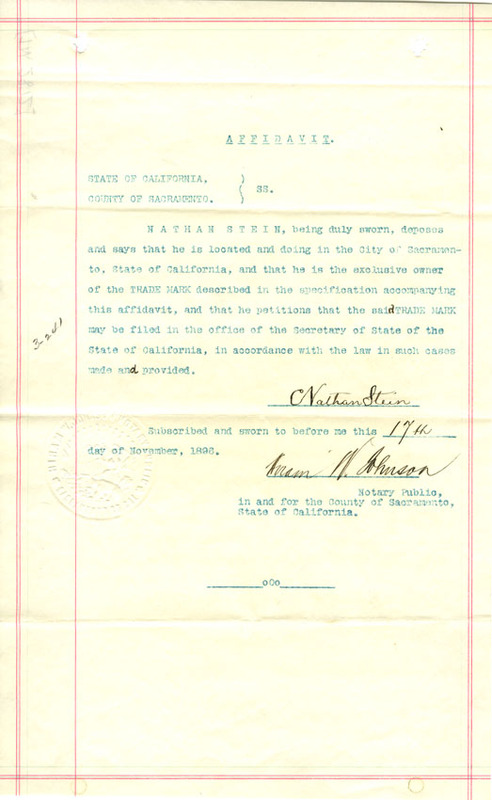 AFFIDAVIT.
STATE OF CALIFORNIA, )
( SS.
COUNTY OF SACRAMENTO. )
NATHAN STEIN, being duly sworn, deposes
and says that he is located and doing in the City of Sacramen-
to, State of California, and that he is the exclusive owner
of the TRADE MARK described in the specification accompanying
this affidavit, and that he petitions that the said TRADE MARK
may be filed in the office of the Secretary of State of the
State of California, in accordance with the law in such cases
made and provided.
Nathan Stein
Subscribed and sworn to before me this 17th
day of November, 1896.
Hiram W. Johnson
Notary Public,
in and for the County of Sacramento,
State of California.
oOo